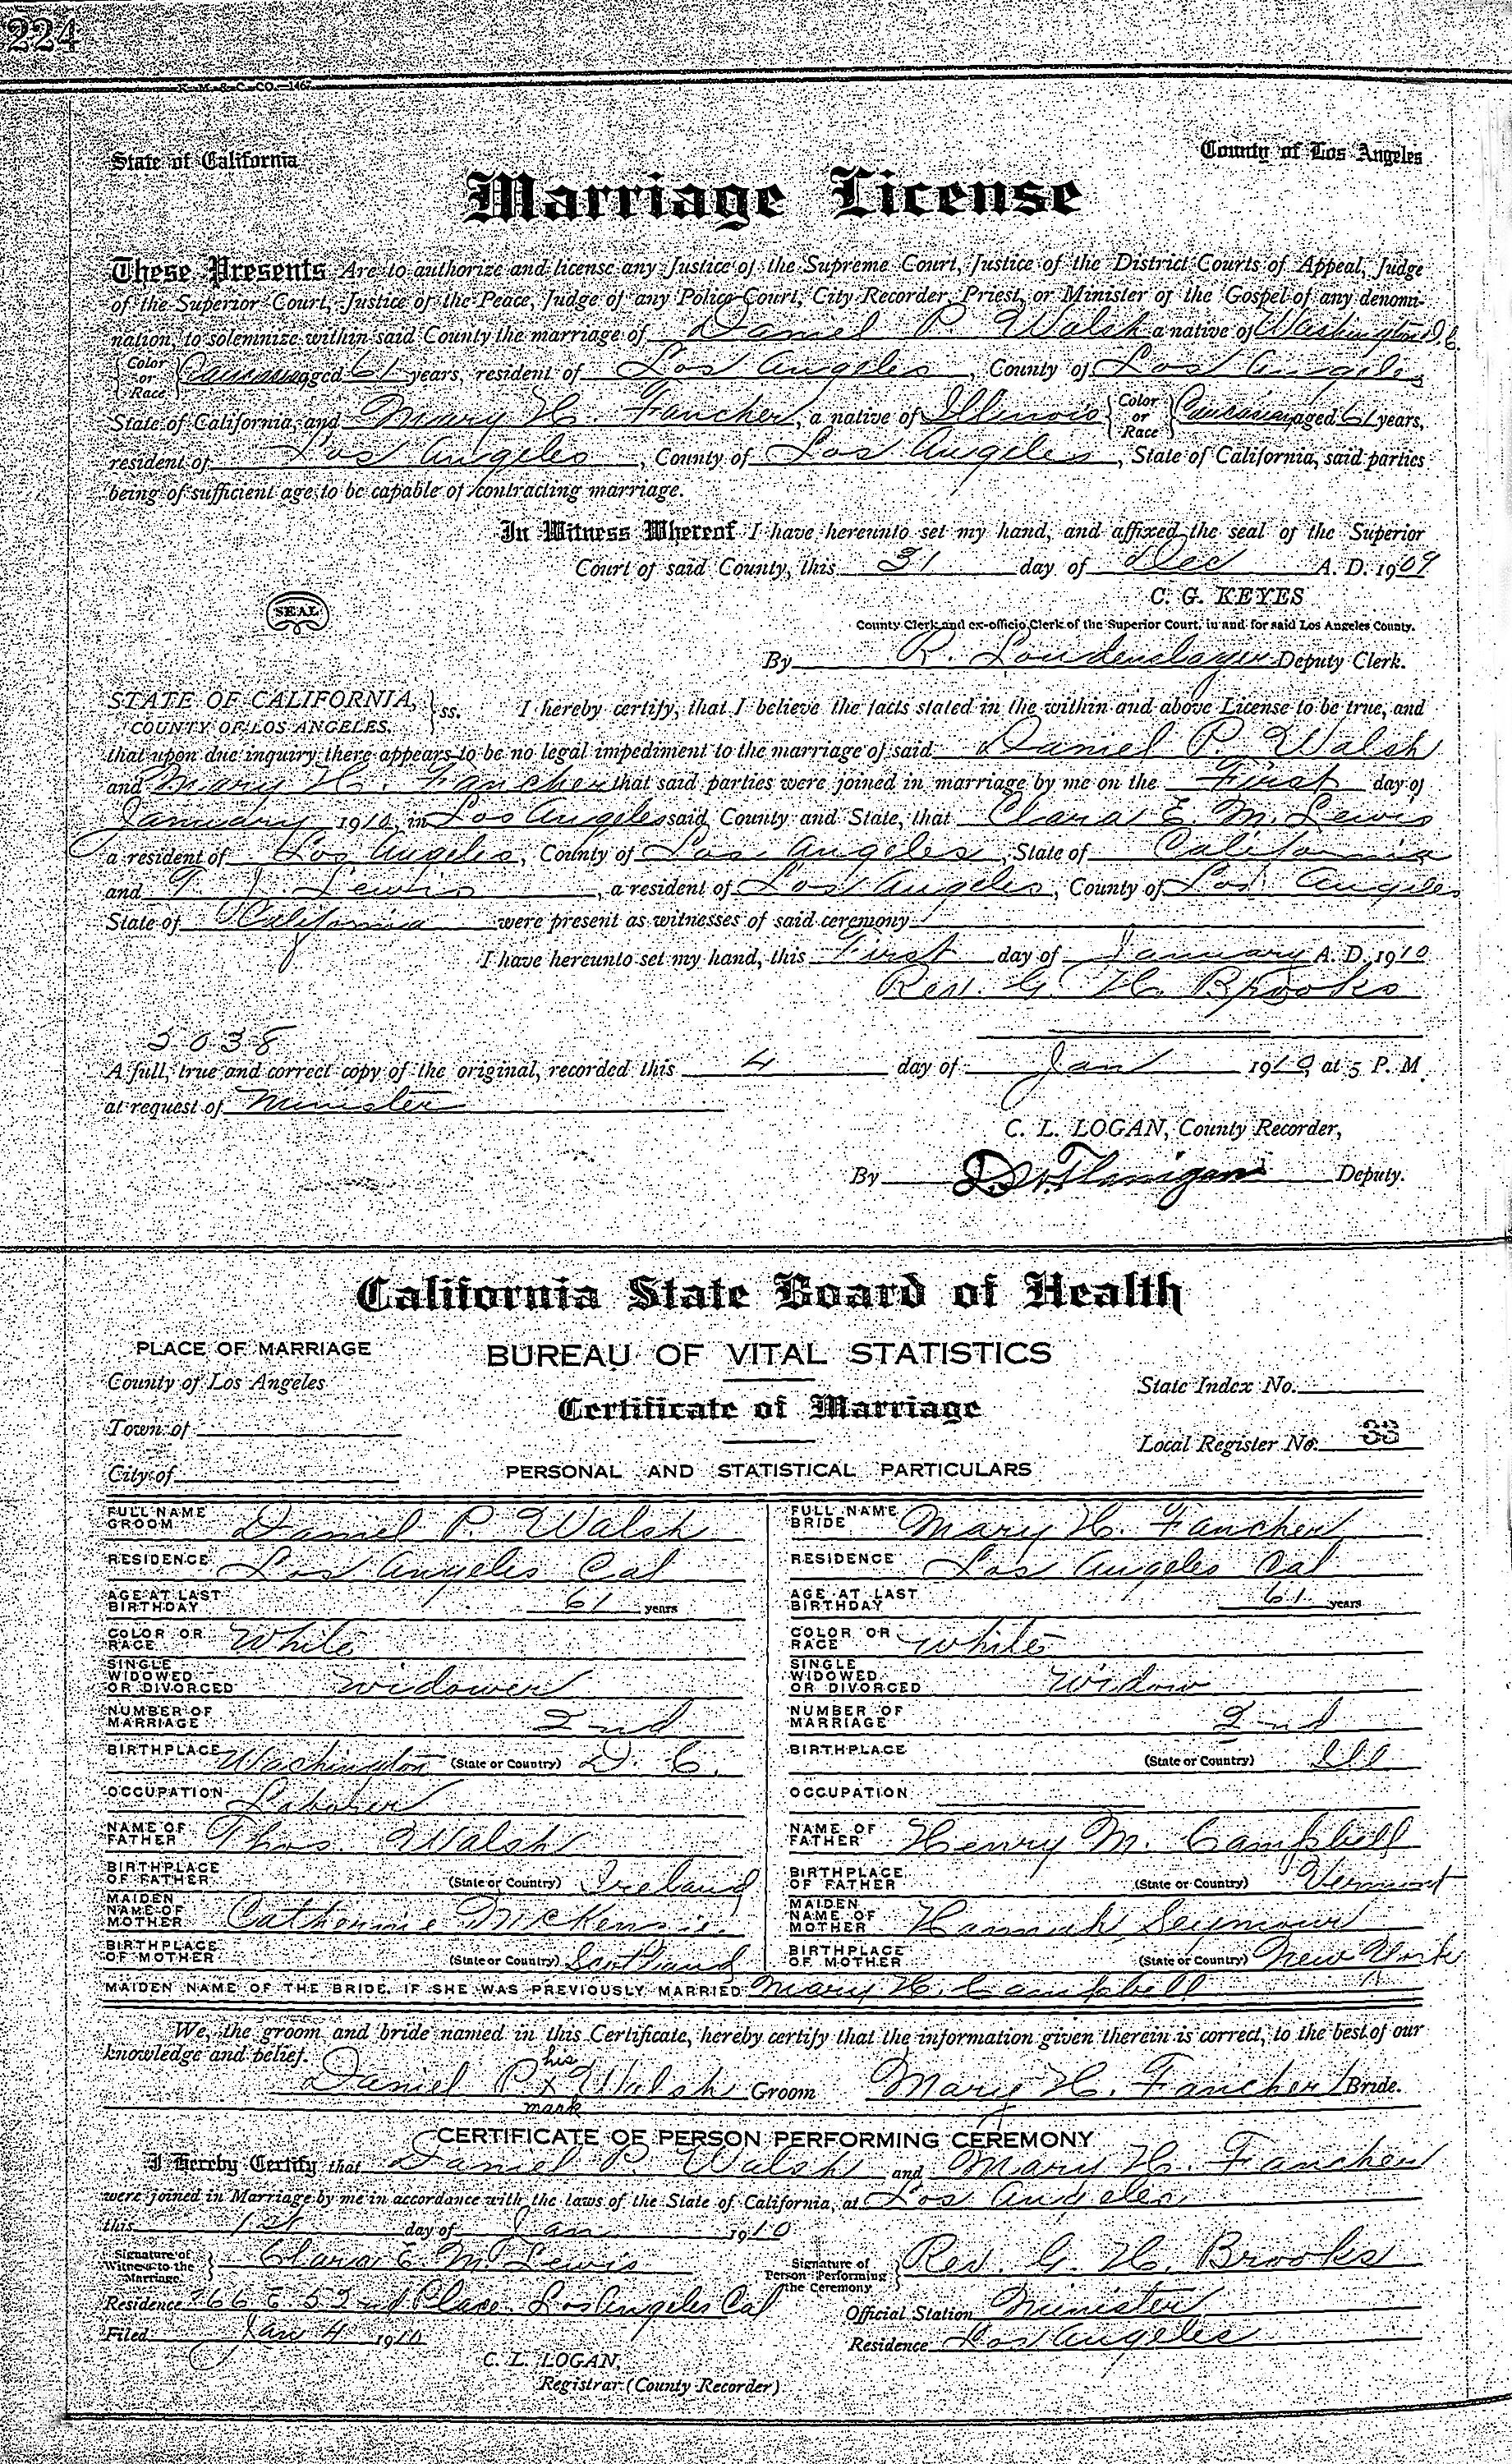 224
N. M. & C. CO.—146
State of California County of Los Angeles
Marriage License
These Presents Are to authorize and license any Justice of the Supreme Court, Justice of the District Courts of Appeal, Judge
of the Superior Court, Justice of the Peace, Judge of any Police Court, City Recorder, Priest, or Minister of the Gospel of any denomi-
nation, to solemnize within said County the marriage of Daniel P. Walsh a native of Washington D.C.
Color or Race Caucasian aged 61 years, resident of Los Angeles, County of Los Angeles,
State of California, and Mary H. Fancher, a native of Illinois Color or Race Caucasian aged 61 years,
resident of Los Angeles, County of Los Angeles, State of California, said parties
being of sufficient age to be capable of contracting marriage.
In Witness Whereof I have hereunto set my hand, and affixed the seal of the Superior
Court of said County, this 31 day of Dec A. D. 1909
C. G. KEYES
SEAL
County Clerk and ex-officio Clerk of the Superior Court, in and for said Los Angeles County.
By R. Loudenclager Deputy Clerk.
STATE OF CALIFORNIA, COUNTY OF LOS ANGELES. ss. I hereby certify, that I believe the facts stated in the within and above License to be true, and
that upon due inquiry there appears to be no legal impediment to the marriage of said Daniel P. Walsh
and Mary H. Fancher that said parties were joined in marriage by me on the First day of
January 1910, in Los Angeles said County and State, that Clara E. M. Lewis
a resident of Los Angeles, County of Los Angeles, State of California
and T. J. Lewis, a resident of Los Angeles, County of Los Angeles
State of California were present as witnesses of said ceremony
I have hereunto set my hand, this First day of January A. D. 1910
Rev. G. H. Brooks
5038
A full, true and correct copy of the original, recorded this 4 day of Jan 1910, at 5 P. M.
at request of Minister
C. L. LOGAN, County Recorder,
By D. W. Flanigan Deputy.
California State Board of Health
PLACE OF MARRIAGE BUREAU OF VITAL STATISTICS
County of Los Angeles State Index No.
Certificate of Marriage
Town of Local Register No. 33
City of PERSONAL AND STATISTICAL PARTICULARS
FULL NAME GROOM Daniel P. Walsh FULL NAME BRIDE Mary H. Fancher
RESIDENCE Los Angeles Cal RESIDENCE Los Angeles Cal
AGE AT LAST BIRTHDAY 61 years AGE AT LAST BIRTHDAY 61 years
COLOR OR RACE White COLOR OR RACE White
SINGLE WIDOWED OR DIVORCED Widower SINGLE WIDOWED OR DIVORCED Widow
NUMBER OF MARRIAGE 2nd NUMBER OF MARRIAGE 2nd
BIRTHPLACE Washington (State or Country) D. C. BIRTHPLACE (State or Country) Ill
OCCUPATION Laborer OCCUPATION
NAME OF FATHER Thos. Walsh NAME OF FATHER Henry M. Campbell
BIRTHPLACE OF FATHER (State or Country) Ireland BIRTHPLACE OF FATHER (State or Country) Vermont
MAIDEN NAME OF MOTHER Catherine McKensie. MAIDEN NAME OF MOTHER Hannah Seymour
BIRTHPLACE OF MOTHER (State or Country) Scotland BIRTHPLACE OF MOTHER (State or Country) New York
MAIDEN NAME OF THE BRIDE, IF SHE WAS PREVIOUSLY MARRIED Mary H. Campbell
We, the groom and bride named in this Certificate, hereby certify that the information given therein is correct, to the best of our
knowledge and belief.
Daniel P. his x mark Walsh Groom Mary H. Fancher Bride.
CERTIFICATE OF PERSON PERFORMING CEREMONY
I Hereby Certify that Daniel P. Walsh and Mary H. Fancher
were joined in Marriage by me in accordance with the laws of the State of California, at Los Angeles
this 1st day of Jan 1910
Signature of Witness to the Marriage. Clara E. M. Lewis Signature of Person Performing the Ceremony Rev. G. H. Brooks
Residence 266 E 52nd Place. Los Angeles Cal Official Station Minister
Filed Jan 4 1910 Residence Los Angeles
C. L. LOGAN,
Registrar (County Recorder)